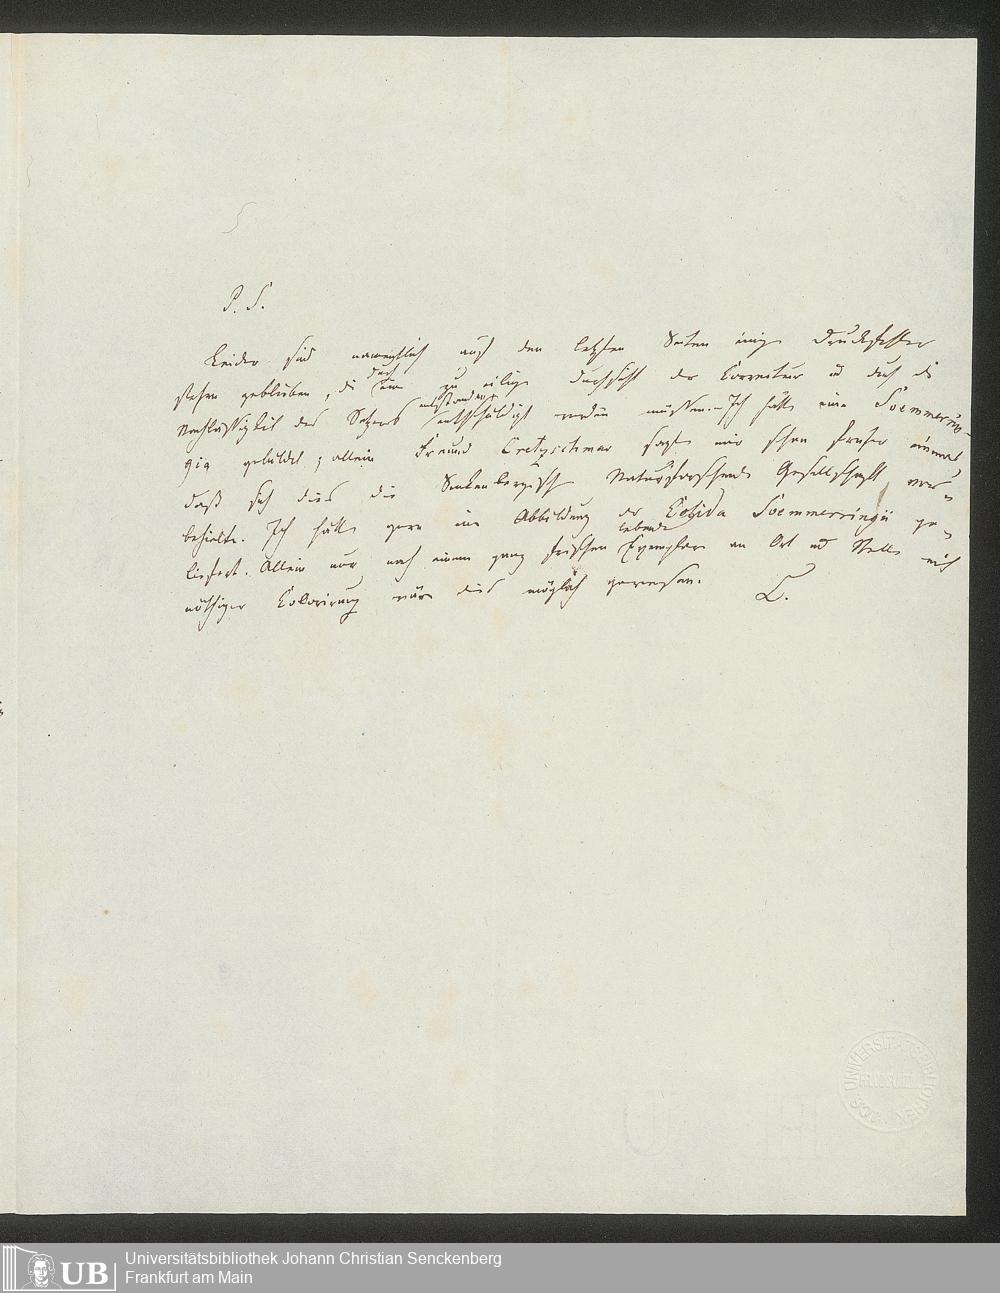 P. S.
Leider sind namentlich auf den letzten Seiten einige Druckfehler
stehen geblieben, die durch eine zu eilige Durchsicht des Correcteur und durch die
Nachlässigkeit des Setzers entstanden entschuldigt werden müssen. – Ich hätte eine Soemmerin-
gia gebildet; allein Freund Cretzschmar sagte mir schon früher einmal,
daß sich dies die Senkenbergische Naturforschende Gesellschaft vor-
behielte. Ich hätte gern eine Abbildung der Soemmerringii ge-
liefert. Allein nur nach einem ganz frischen lebende Exemplare an Ort und Stelle mit
nöthiger Colorirung wäre dies möglich gewesen.
L.
UNIVERSITÄTSBIBLIOTHEK
Universitätsbibliothek Johann Christian Senckenberg
Frankfurt am Main
UB